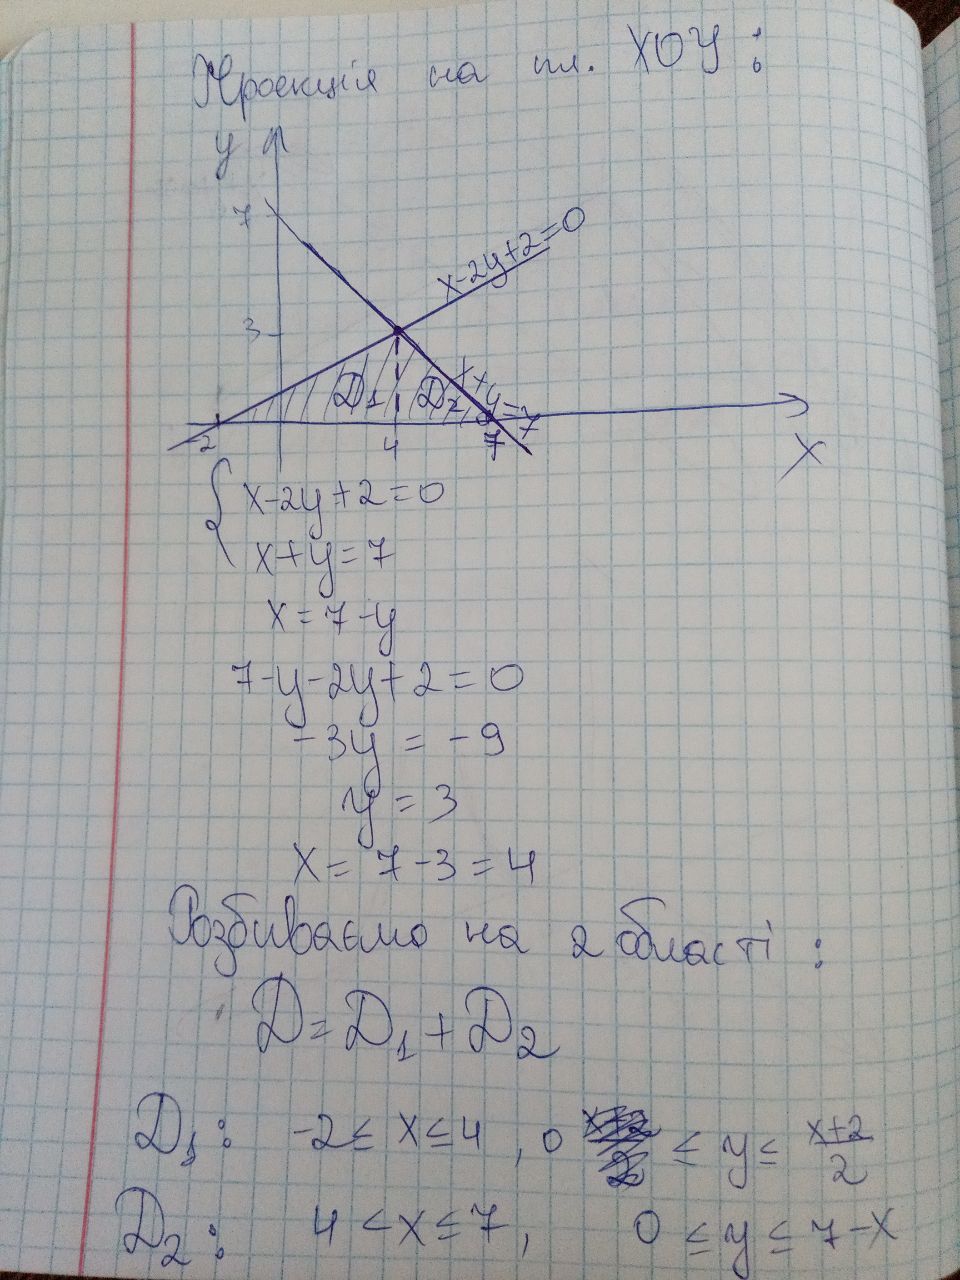 Проекція на пл. XOY:
y
7
x-2y+2=0
3
D1 D2 x+y=7
-2 4 7
X
{ x-2y+2=0
x+y=7
x=7-y
7-y-2y+2=0
-3y = -9
y = 3
x = 7-3 = 4
Розбиваємо на 2 області:
D = D1 + D2
D1: -2 ≤ x ≤ 4, 0 ≤ y ≤ x+2/2
D2: 4 < x ≤ 7, 0 ≤ y ≤ 7-x